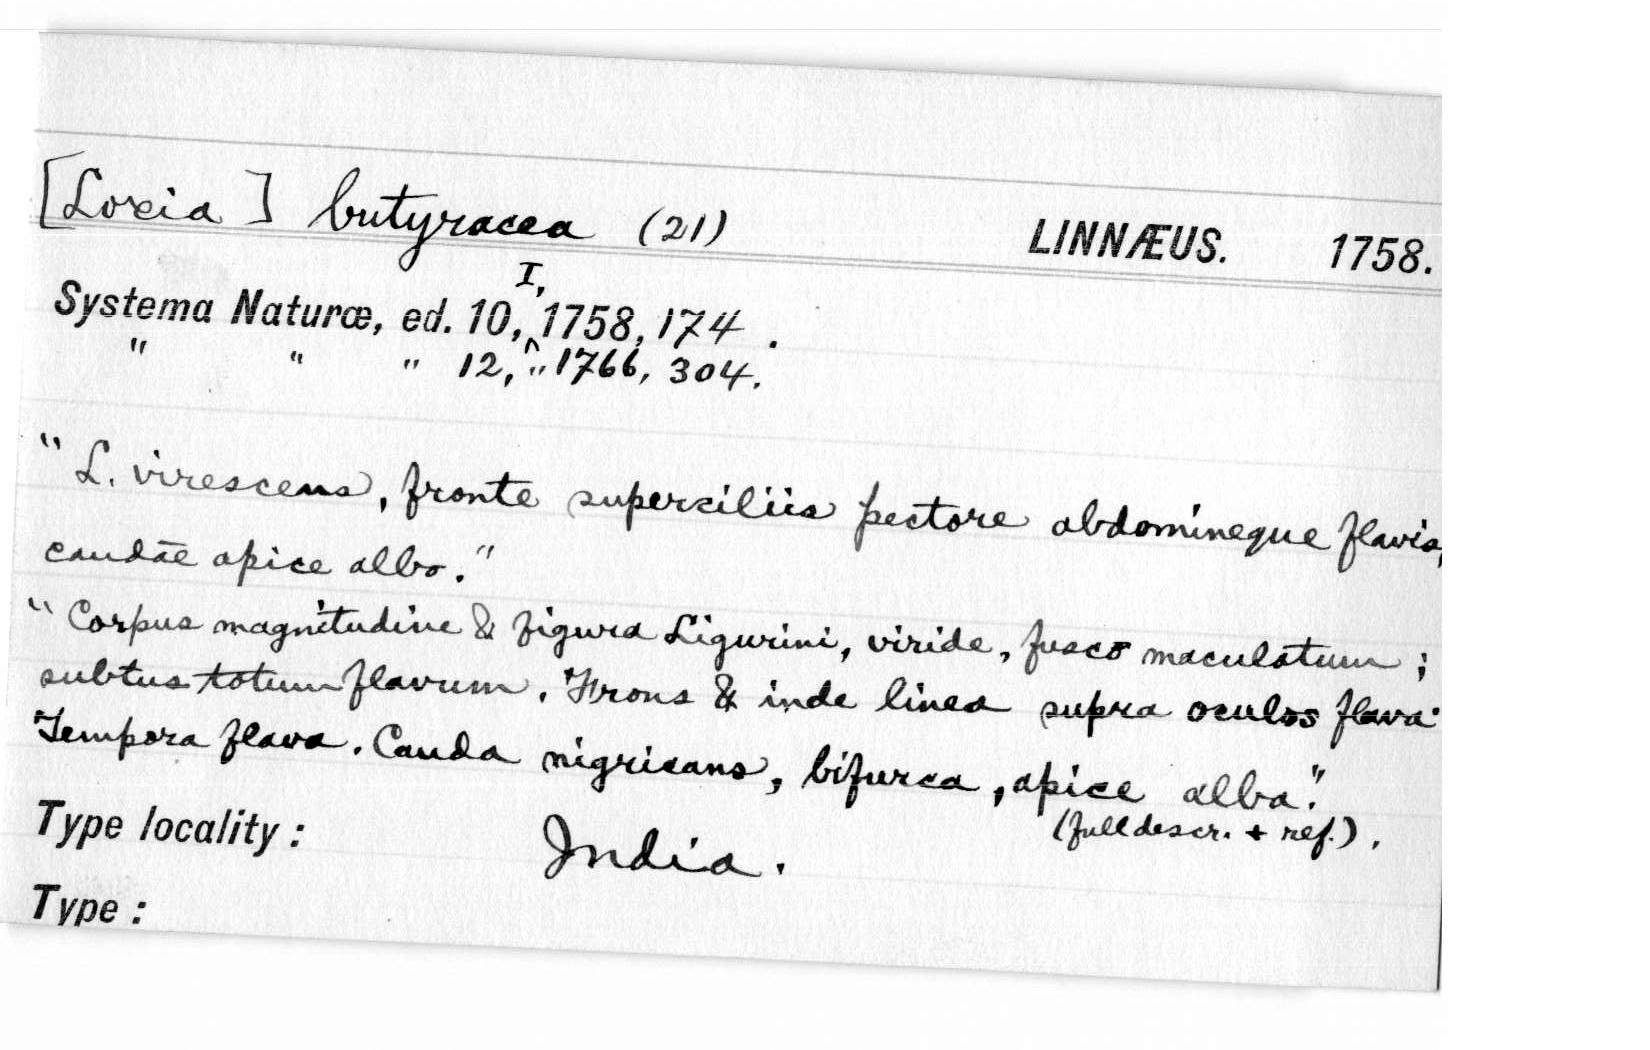 [Loxia] butyracea (21) LINNÆUS. 1758.
I,
Systema Naturæ, ed. 10, ^ 1758, 174.
" " " 12, " 1766, 304.
"L. virescens, fronte superciliis pectore abdomineque flavis,
caudæ apice albo."
"Corpus magnitudine & figura Ligurini, viride, fusco maculatum;
subtus totum flavum. Frons & inde linea supra oculos flava.
Tempora flava. Cauda nigricans, bifurca, apice alba."
(full descr. + ref.).
Type locality: India.
Type: